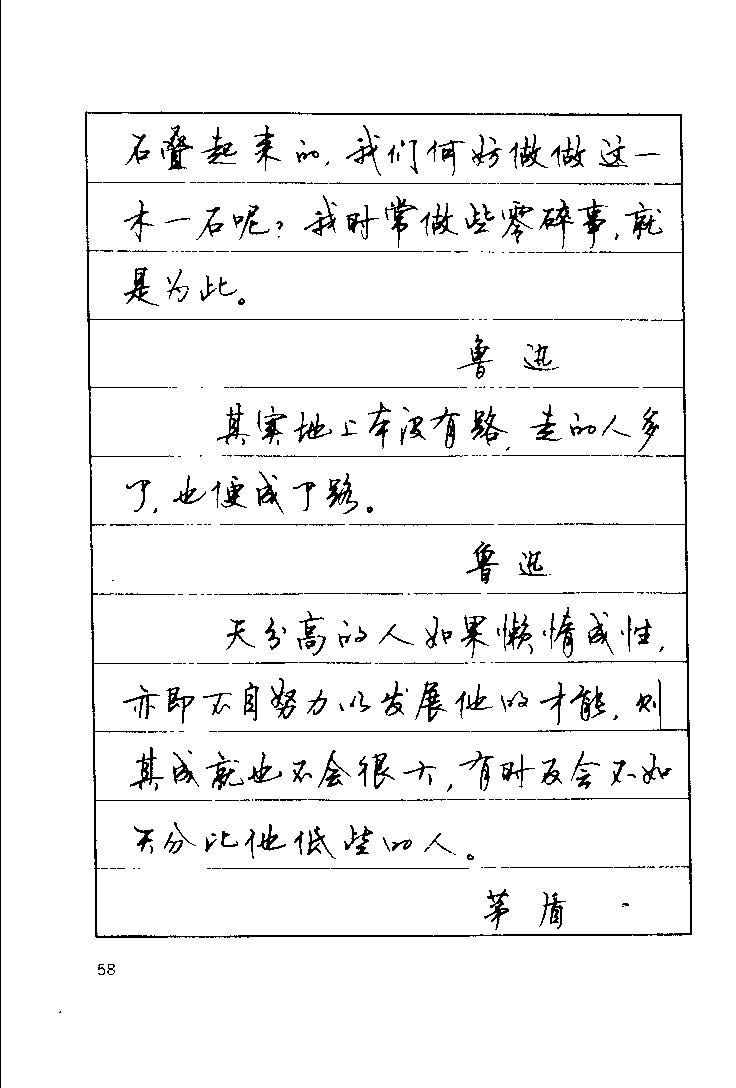 石叠起来的,我们何妨做做这一
木一石呢?我时常做些零碎事,就
是为此。
鲁迅
其实地上本没有路,走的人多
了,也便成了路。
鲁迅
天分高的人如果懒惰成性,
亦即不自努力以发展他的才能,则
其成就也不会很大,有时反会不如
天分比他低些的人。
茅盾
58